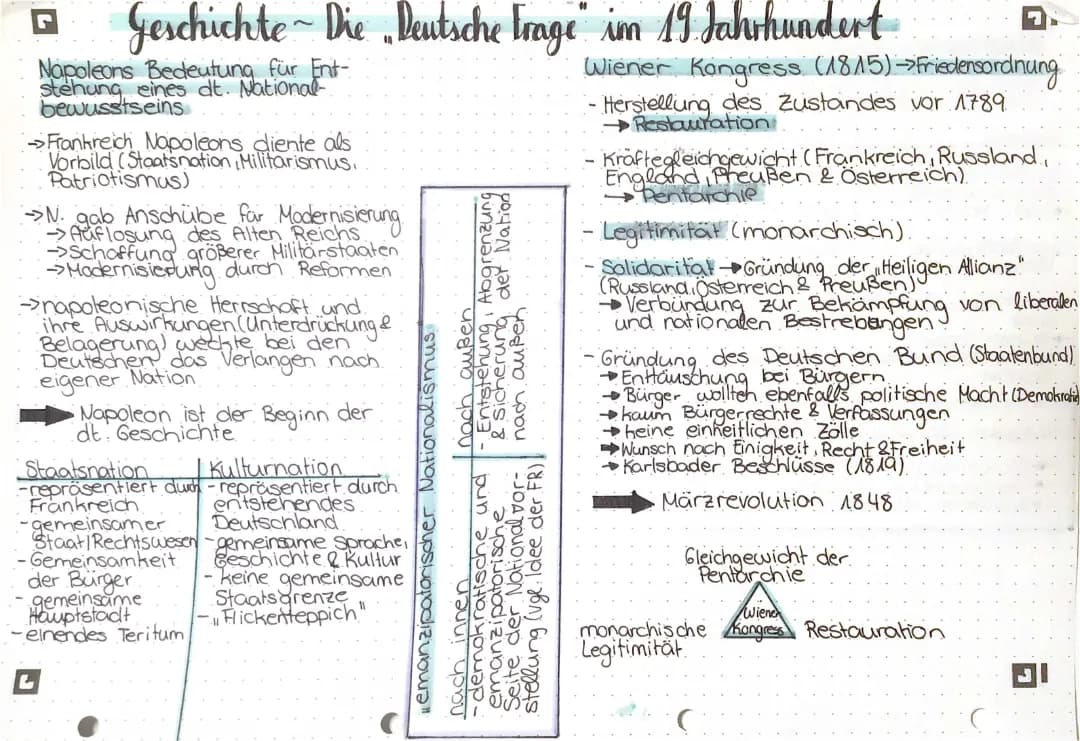 Geschichte ~ Die „Deutsche Frage" im 19 Jahrhundert
Napoleons Bedeutung für Ent-
stehung eines dt. National-
bewusstseins
→ Frankreich Napoleons diente als
Vorbild (Staatsnation, Militarismus,
Patriotismus)
→ N. gab Anschübe für Modernisierung
→ Auflösung des Alten Reichs
→ Schaffung größerer Militärstaaten
→ Modernisierung durch Reformen
→ napoleonische Herrschaft und
ihre Auswirkungen (Unterdrückung &
Belagerung) weckte bei den
Deutschen das Verlangen nach
eigener Nation
➡ Napoleon ist der Beginn der
dt. Geschichte
Staatsnation
- repräsentiert durch
Frankreich
- gemeinsamer
Staat/Rechtswesen
- Gemeinsamkeit
der Bürger
- gemeinsame
Hauptstadt
- einendes Teritum
Kulturnation
- repräsentiert durch
entstehendes
Deutschland
- gemeinsame Sprache,
Geschichte & Kultur
- keine gemeinsame
Staatsgrenze
- „Flickenteppich"
„emanzipatorischer Nationalismus
nach innen
- demokratische und
emanzipatorische
Seite der Nationalvor-
stellung (vgl. Idee der FR)
nach außen
- Entstehung, Abgrenzung
& Sicherung der Nation
nach außen
Wiener Kongress (1815) → Friedensordnung
- Herstellung des Zustandes vor 1789
→ Restauration
- Kräftegleichgewicht (Frankreich, Russland,
England, Preußen & Österreich)
→ Pentarchie
- Legitimität (monarchisch)
- Solidarität → Gründung der „Heiligen Allianz"
(Russland, Österreich & Preußen)
→ Verbündung zur Bekämpfung von liberalen
und nationalen Bestrebungen
- Gründung des Deutschen Bund (Staatenbund)
→ Enttäuschung bei Bürgern
→ Bürger wollten ebenfalls politische Macht (Demokratie)
→ kaum Bürgerrechte & Verfassungen
→ keine einheitlichen Zölle
→ Wunsch nach Einigkeit, Recht & Freiheit
→ Karlsbader Beschlüsse (1819)
➡ Märzrevolution 1848
Gleichgewicht der
Pentarchie
Wiener
Kongress
monarchische
Legitimität
Restauration